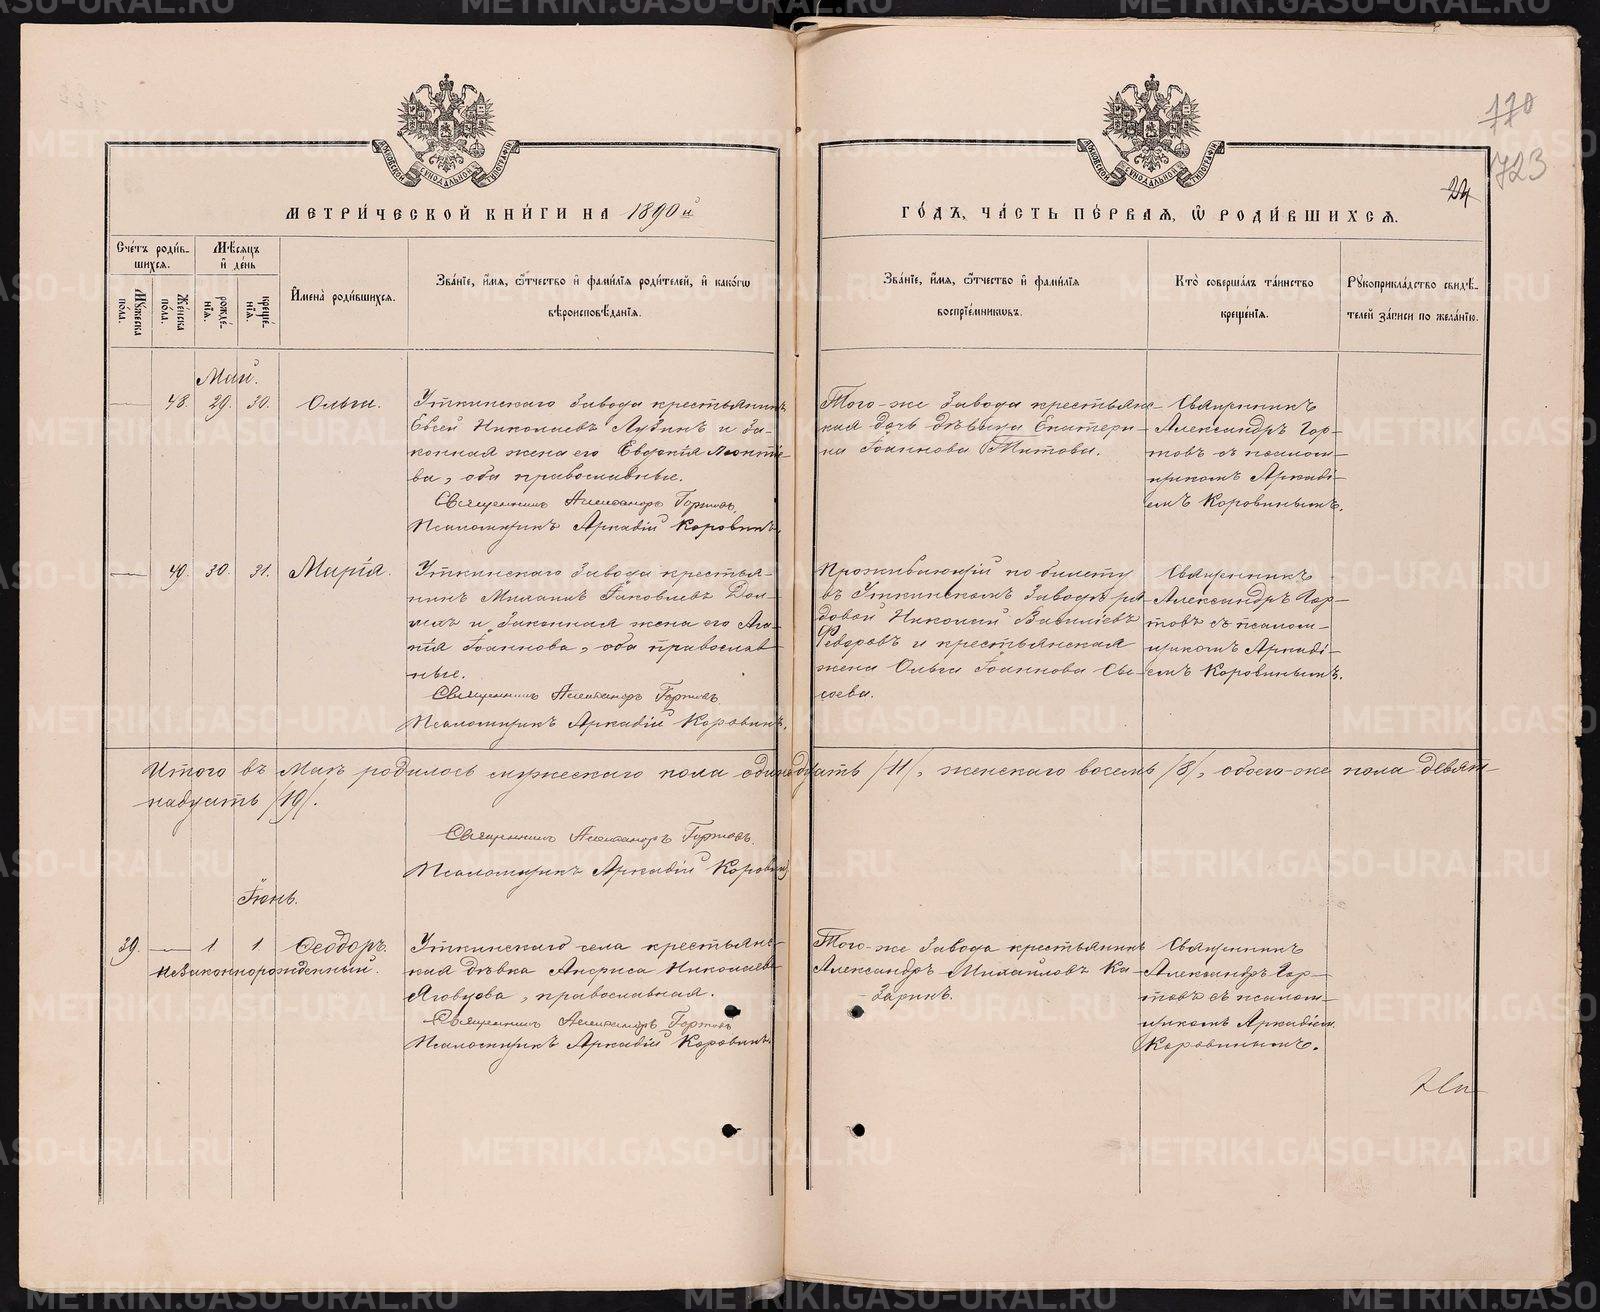 170
723
24
МЕТРИ́ЧЕСКОЙ КНИ́ГИ НА 1890й
ГО́ДЪ, ЧА́СТЬ ПЕ́РВАЯ, Ѡ҆ РОДИ́ВШИХСѦ.
Сче́тъ роди́в-
шихся.
Мѣсяцъ
и де́нь
Му́жеска
по́ла.
Же́нска
по́ла.
рожде́-
нїя.
креще́-
нїя.
И҆мена̀ роди́вшихся.
Зва́нїе, и҆́мя, ѻ҆́тчество и҆ фами́лїя роди́телей, и҆ како́гѡ
вѣроисповѣ́данїя.
Зва́нїе, и҆́мя, ѻ҆́тчество и҆ фами́лїя
воспрїе́мникѡвъ.
Кто̀ соверша́лъ та́инство
креще́нїя.
Рꙋкоприкла́дство свидѣ́-
телей за́писи по жела́нїю.
Май.
48. 29. 30. Ольга.
Уткинскаго завода крестьянинъ
Евсей Николаевъ Лузинъ и за-
конная жена его Евдокія Леонтіе-
ва, оба православные.
Священникъ Александръ Гортовъ.
Псаломщикъ Аркадій Коровинъ.
Того-же завода крестьянс-
кая дочь дѣвица Екатери-
на Іоаннова Титова.
Священникъ
Александръ Гор-
товъ съ псалом-
щикомъ Аркаді-
емъ Коровинымъ.
49. 30. 31. Марія.
Уткинскаго завода крестья-
нинъ Іаковлевъ
и законная жена его Ага-
пія Іоаннова, оба православ-
ные.
Священникъ Александръ Гортовъ.
Псаломщикъ Аркадій Коровинъ.
Проживающій по билету
въ Уткинскомъ заводѣ ря-
довой Николай Василіевъ
Ѳеодоровъ и крестьянская
жена Ольга Іоаннова Сы-
соева.
Священникъ
Александръ Гор-
товъ съ псалом-
щикомъ Аркаді-
емъ Коровинымъ.
Итого въ Маѣ родилось мужескаго пола одинадцать /11/, женскаго восемь /8/, обоего-же пола девят-
надцать /19/.
Священникъ Александръ Гортовъ.
Псаломщикъ Аркадій Коровинъ
Іюнь.
39. 1 1. Ѳеодоръ.
незаконнорожденный.
Уткинскаго села крестьянс-
кая дѣвка Анфиса Николаева
Яговцова, православная.
Священникъ Александръ Гортовъ
Псаломщикъ Аркадій Коровинъ.
Того-же завода крестьянинъ
Александръ Михайловъ Ка-
заринъ.
Священникъ
Александръ Гор-
товъ съ псалом-
щикомъ Аркадіем
Коровинымъ.